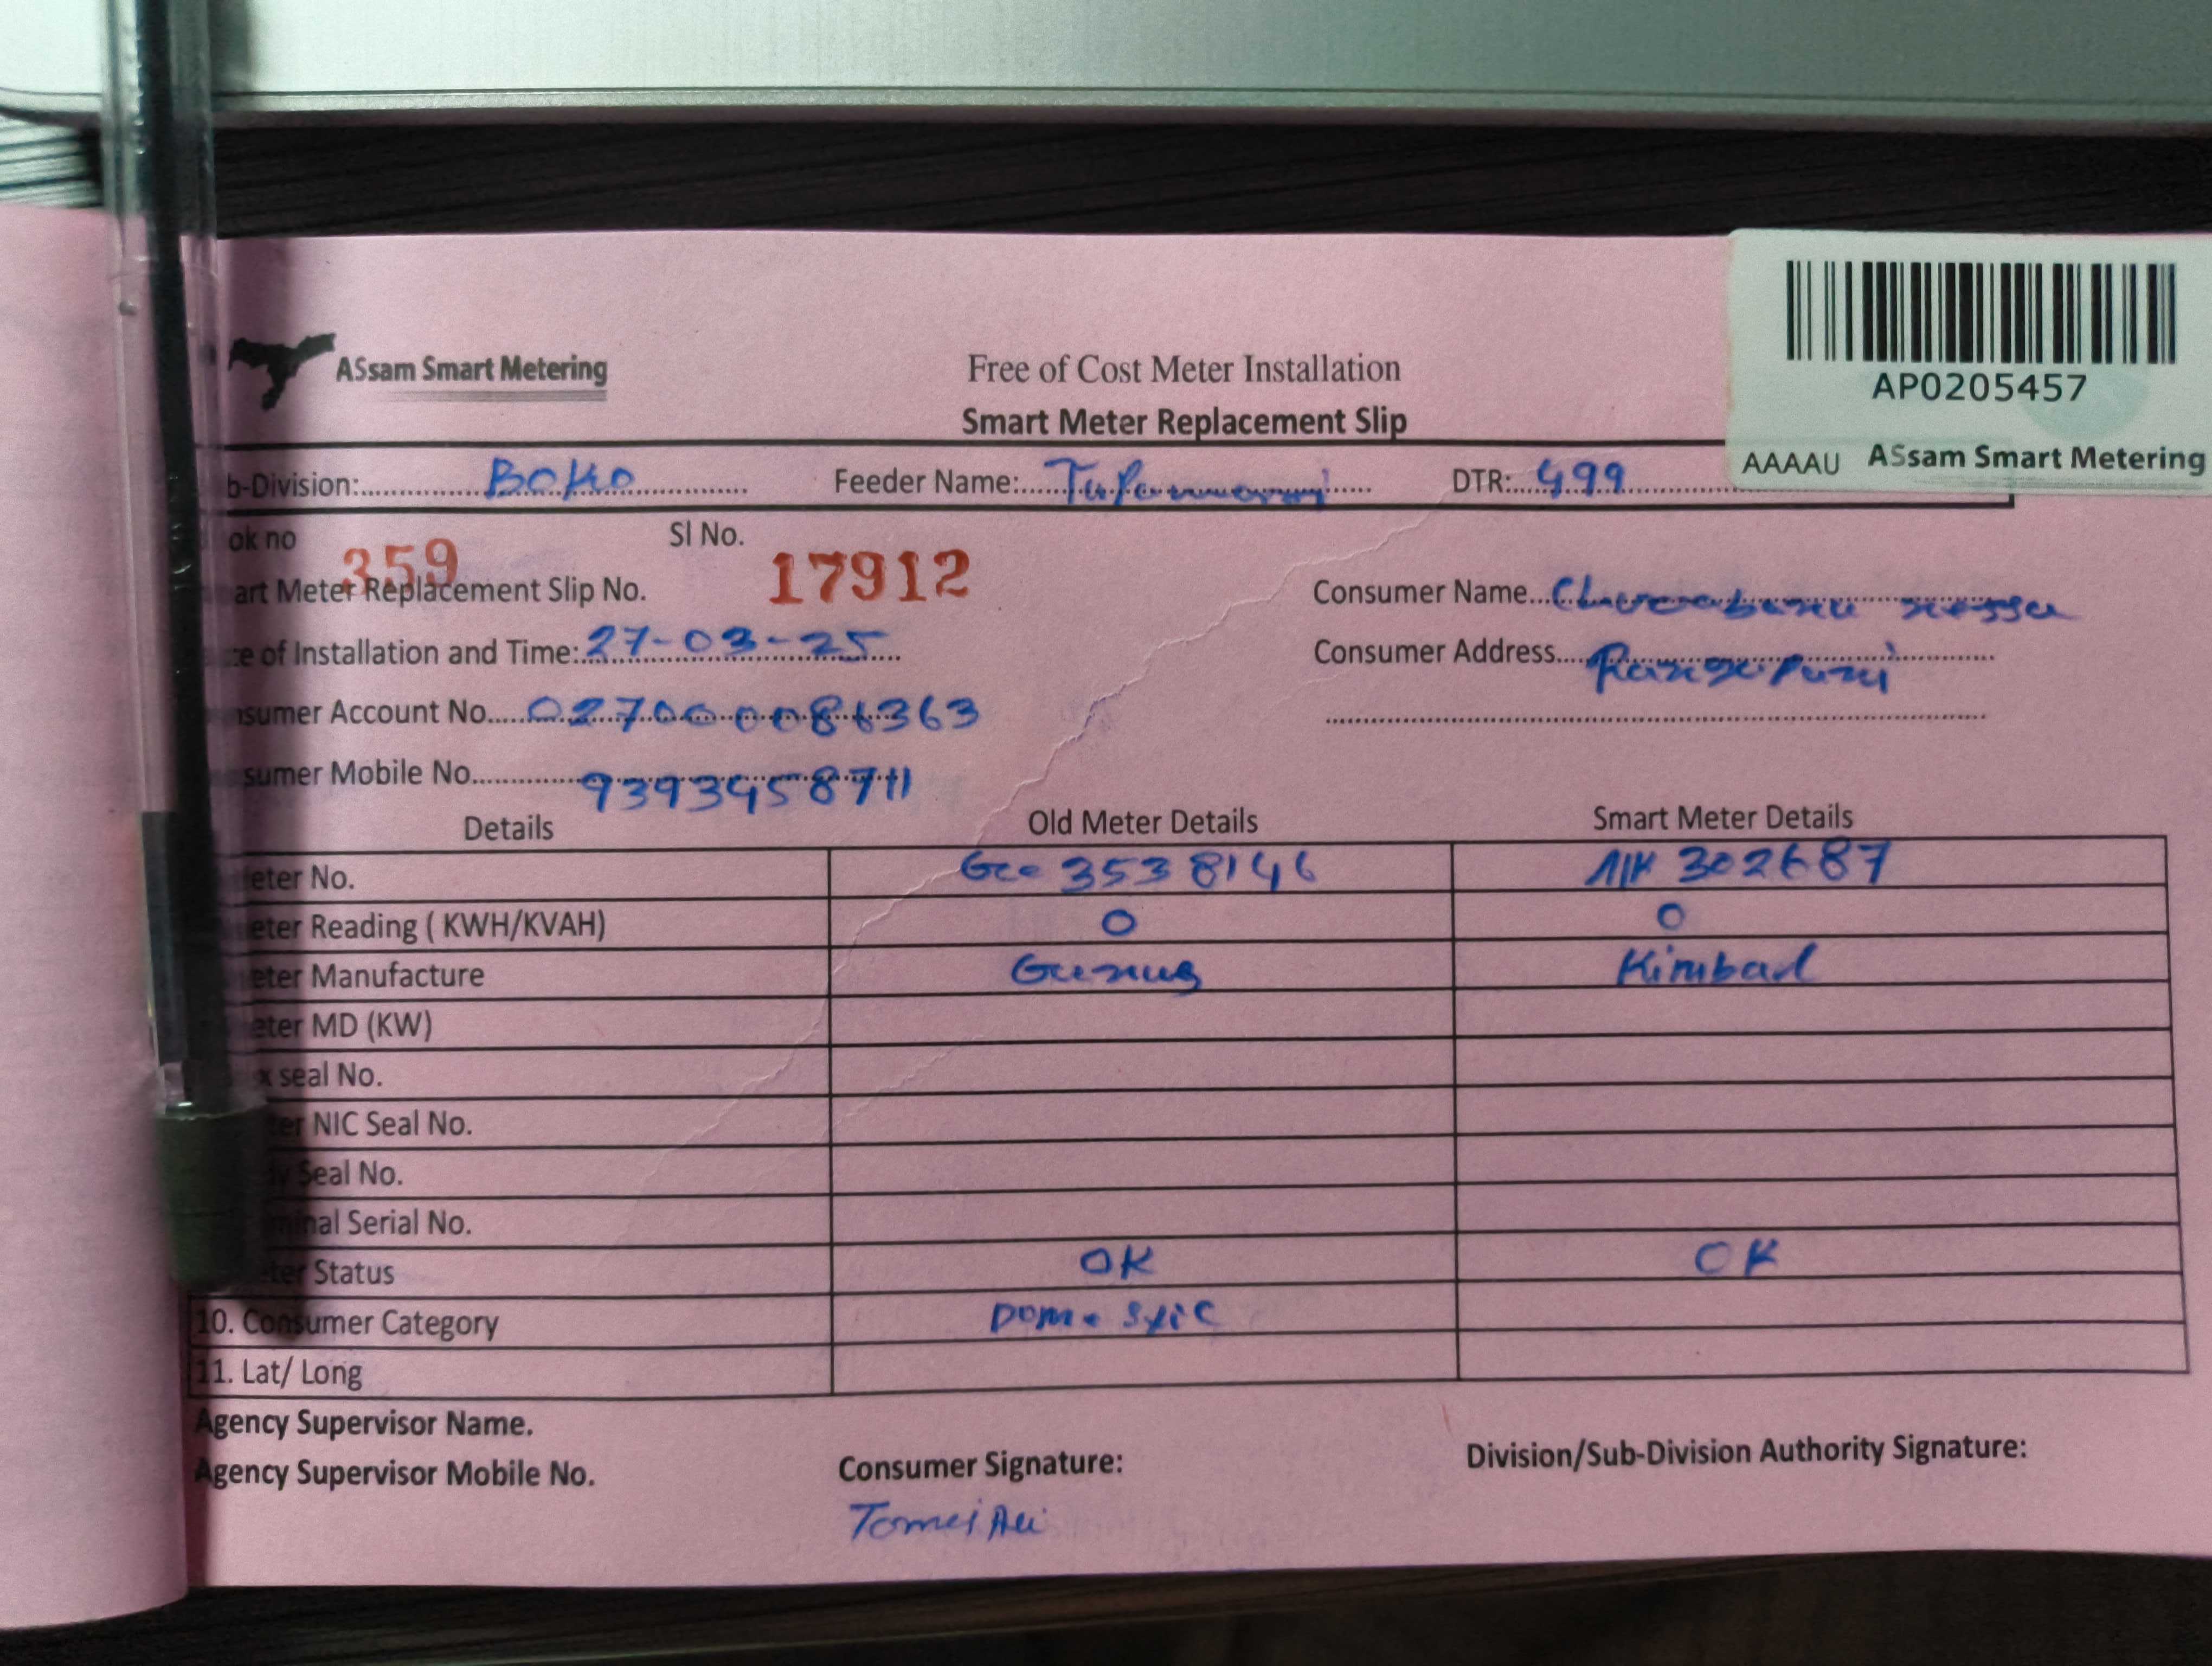 ASsam Smart Metering
Free of Cost Meter Installation
Smart Meter Replacement Slip
AP0205457
AAAAU ASsam Smart Metering
b-Division: BOKO Feeder Name: DTR: 499
ok no 359 Sl No. 17912
art Meter Replacement Slip No.
Consumer Name
e of Installation and Time: 27-03-25
Consumer Address
nsumer Account No. 027000086363
sumer Mobile No. 9393458711
Details Old Meter Details Smart Meter Details
eter No. 3538146 302687
eter Reading ( KWH/KVAH) 0 0
eter Manufacture Genus Kimbal
eter MD (KW)
x seal No.
ter NIC Seal No.
Seal No.
nal Serial No.
ter Status OK OK
10. Consumer Category Domestic
11. Lat/ Long
Agency Supervisor Name.
Agency Supervisor Mobile No.
Consumer Signature:
Division/Sub-Division Authority Signature:
Ali